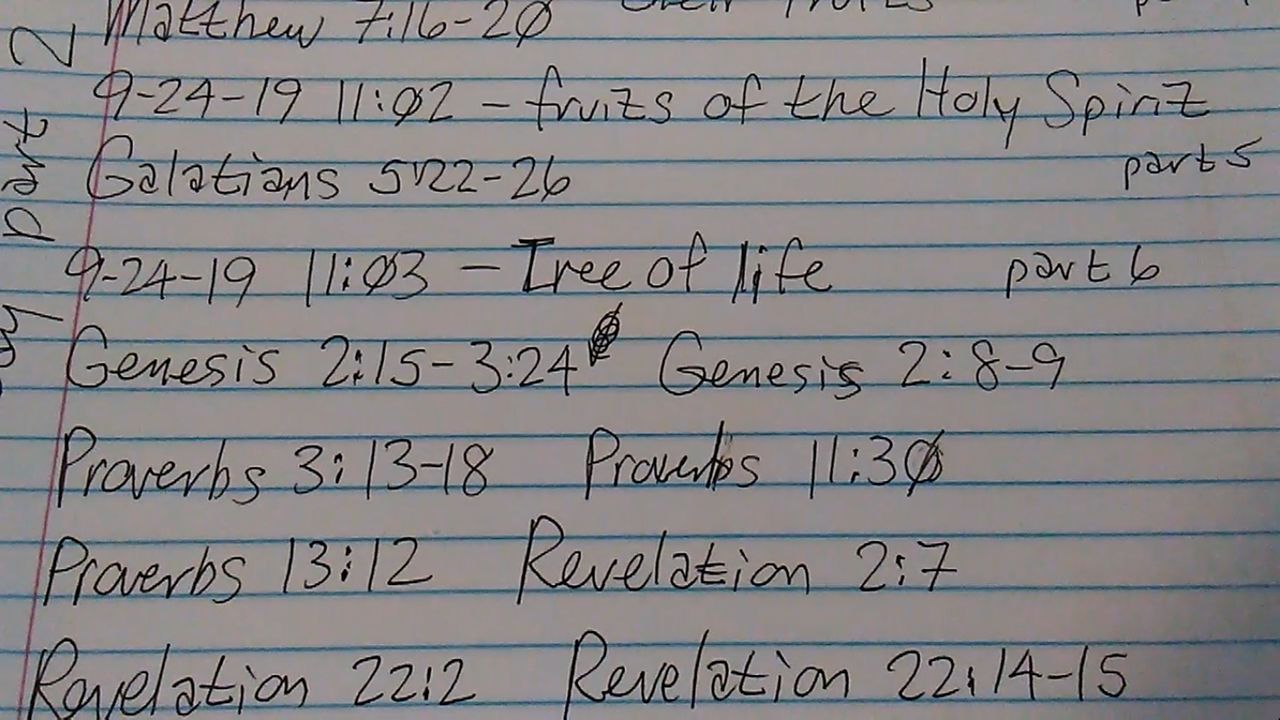 Matthew 7:16-20 their fruits
9-24-19 11:02 - fruits of the Holy Spirit
Galatians 5:22-26 part 5
9-24-19 11:03 - Tree of life part 6
Genesis 2:15-3:24 Genesis 2:8-9
Proverbs 3:13-18 Proverbs 11:30
Proverbs 13:12 Revelation 2:7
Revelation 22:2 Revelation 22:14-15
part 2